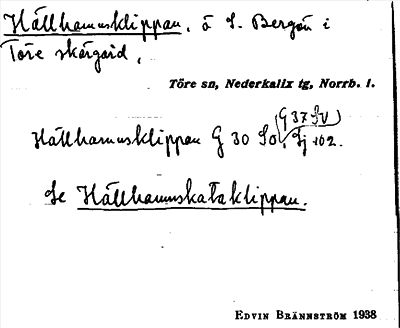 Hällhamnsklippan, å S. Bergön i
Töre skärgård,
Töre sn, Nederkalix tg, Norrb. l.
G 37 SV
Hällhamnsklippan G 30 So, Sj 102.
Se Hällhamnskataklippan.
EDVIN BRÄNNSTRÖM 1938